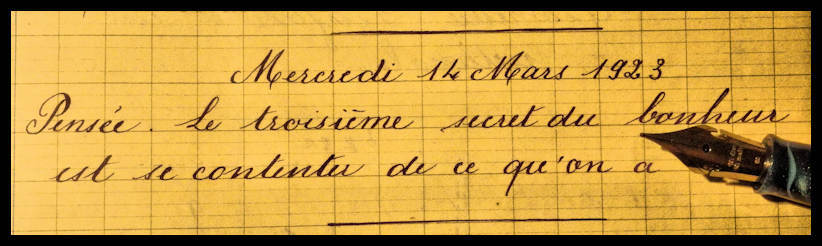 Mercredi 14 Mars 1923
Pensée. Le troisième secret du bonheur
est se contenter de ce qu'on a